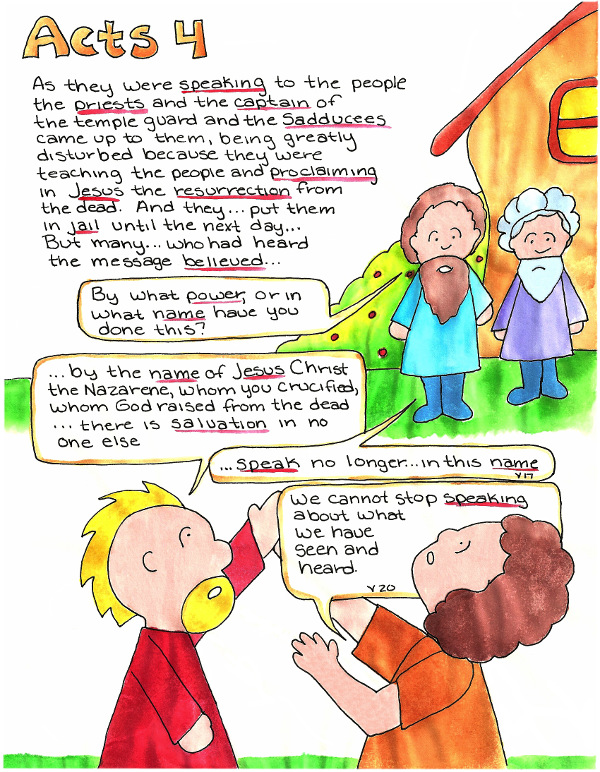 Acts 4
As they were speaking to the people
the priests and the captain of
the temple guard and the Sadducees
came up to them, being greatly
disturbed because they were
teaching the people and proclaiming
in Jesus the resurrection from
the dead. And they... put them
in jail until the next day...
But many... who had heard
the message believed...
By what power, or in
what name have you
done this?
...by the name of Jesus Christ
the Nazarene, whom you crucified,
whom God raised from the dead
... there is salvation in no
one else
...speak no longer...in this name
v17
We cannot stop speaking
about what
we have
seen and
heard.
v20